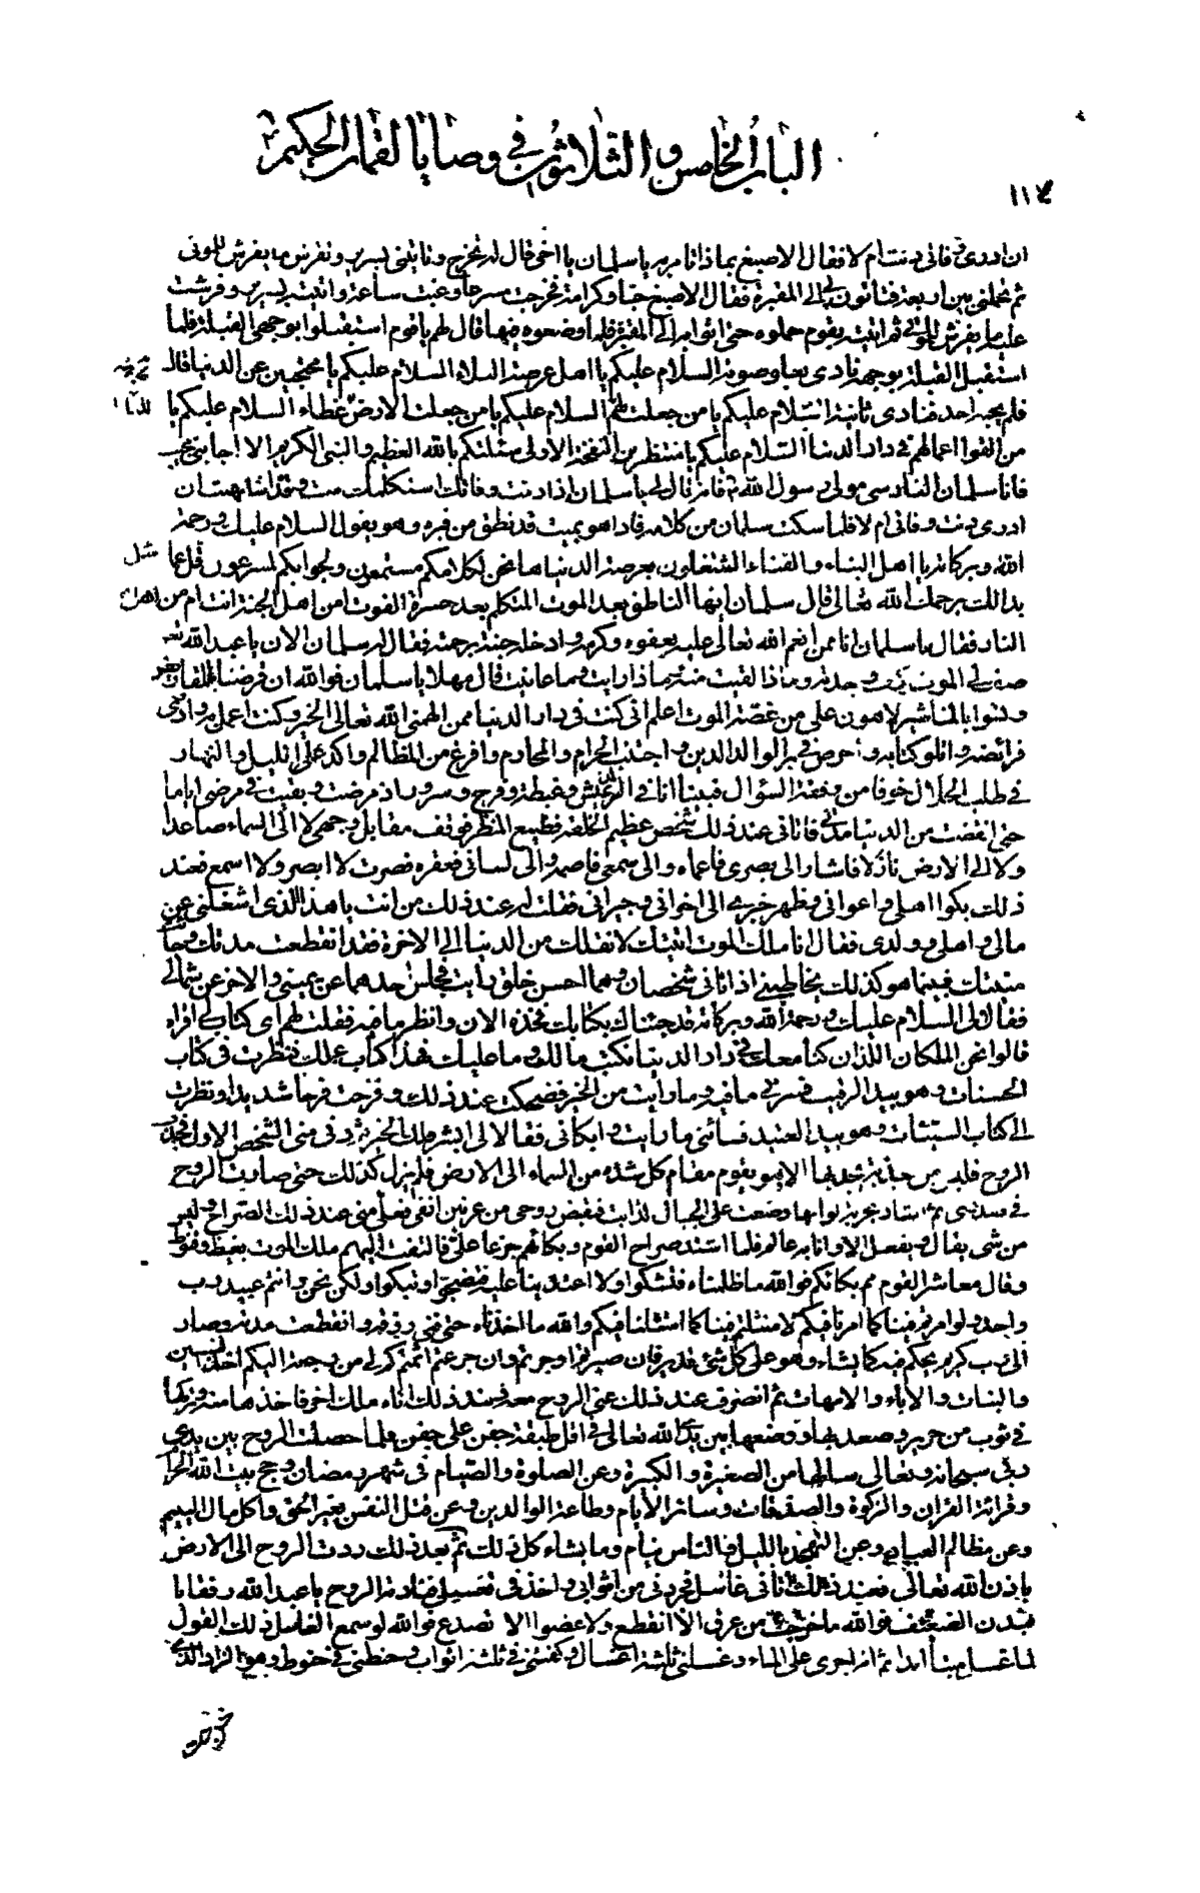 الباب الخامس والثلاثون في وصايا لقمان الحكيم
١١٤
ان ادري وفاتي دنت ام لا فقال الاصبغ بماذا تامر به يا سلمان يا اخي قال له تخرج وتاتيني بسرير وتفرش ما يفرش للموتى
ثم تحملني بين اربعة فتاتون بي الى المقبرة فقال الاصبغ حبا وكرامة فخرجت مسرعا وغبت ساعة واتيته بسرير وفرشت
عليه ما يفرش للموتى ثم اتيته بقوم حملوه حتى اتوا به الى المقبرة فلما وضعوه فيها قال لهم يا قوم استقبلوا بوجهي القبلة فلما
استقبل القبلة بوجهه نادى بعلو صوته السلام عليكم يا اهل عرصة البلاء السلام عليكم يا محتجبين عن الدنيا قال
فلم يجبه احد فنادى ثانية السلام عليكم يا من جعلت لهم السلام عليكم يا من جعلت الارض غطاء السلام عليكم يا
من لقوا اعمالهم في دار الدنيا السلام عليكم يا منتظرين النفخة الاولى سئلتكم بالله العظيم والنبي الكريم الا اجابني مجيب
فانا سلمان الفارسي مولى رسول الله فانه قال لي يا سلمان اذا دنت وفاتك استكلمك ميت وقد اشتهيت ان
ادري دنت وفاتي ام لا فلما سكت سلمان من كلامه فاذا هو بميت قد نطق من قبره وهو يقول السلام عليك ورحمة
الله وبركاته يا اهل البناء والفناء المشتغلون بعرصة الدنيا ها نحن لكلامكم مستمعون ولجوابكم لمسرعون فسل عما
بدا لك يرحمك الله تعالى قال سلمان ايها الناطق بعد الموت المتكلم بعد حسرة الفوت امن اهل الجنة انت ام من اهل
النار فقال يا سلمان انا ممن انعم الله تعالى عليه بعفوه وكرمه وادخله جنته برحمته فقال له سلمان الان يا عبد الله
صف لي الموت كيف وجدته وماذا لقيت منه وما رايت وما عاينت قال مهلا يا سلمان فوالله ان قرضا بالمقاريض
ونشرا بالمناشير لاهون علي من غصة الموت اعلم اني كنت في دار الدنيا ممن الهمني الله تعالى الخير وكنت اعمل به واؤدي
فرائضه واتلو كتابه واحرص في بر الوالدين واجتنب الحرام والمحارم وافرغ من المظالم واكد علي الليل والنهار
في طلب الحلال خوفا من وقفة السؤال فبينا انا في الذ عيش وغبطة وفرح وسرور اذ مرضت وبقيت في مرضي اياما
حتى انقضت من الدنيا مدتي فاتاني عند ذلك شخص عظيم الخلقة فظيع المنظر فوقف مقابل وجهي لا الى السماء صاعدا
ولا الى الارض نازلا فاشار الى بصري فاعماه والى سمعي فاصمه والى لساني فعقره فصرت لا ابصر ولا اسمع فعند
ذلك بكوا اهلي واعواني وظهر خبري الى اخواني وجيراني فقلت له عند ذلك من انت يا هذا الذي اشغلني عن
مالي واهلي وولدي فقال انا ملك الموت اتيتك لانقلك من الدنيا الى الاخرة فقد انقطعت مدتك وجائت
منيتك فبينما هو كذلك يخاطبني اذا اتاني شخصان وهما احسن خلق رايت فجلس احدهما عن يميني والاخر عن شمالي
فقالا لي السلام عليك ورحمة الله وبركاته قد جئناك بكتابك فخذه الان وانظر ما فيه فقلت لهم اي كتاب لي اقراه
قالوا نحن الملكان اللذان كنا معك في دار الدنيا نكتب ما لك وما عليك فهذا كتاب عملك فنظرت في كتاب
الحسنات وهو بيد الرقيب فسرني ما فيه وما رايت من الخير فضحكت عند ذلك وفرحت فرحا شديدا ونظرت
الى كتاب السيئات وهو بيد العتيد فسائني ما رايت وابكاني فقالا لي ابشر فلك الخير ثم دنى مني الشخص الاول فجذب
الروح فليس من جذبة يجذبها الا وهو يقوم مقام كل شدة من السماء الى الارض فلم يزل كذلك حتى صارت الروح
في صدري ثم اشار بحربة لو انها وضعت على الجبال لذابت فقبض روحي من عرنين انفي فعلى مني عند ذلك الصراخ وليس
من شيء يقال ويفعل الا وانا به عالم فلما اشتد صراخ القوم وبكائهم جزعا علي فالتفت اليهم ملك الموت بغيظ وقنوط
وقال معاشر القوم مم بكائكم فوالله ما ظلمناه فتشكوا ولا اعتدينا عليه فتضجوا وتبكوا ولكن نحن وانتم عبيد رب
واحد ولو امرتم فينا كما امرنا فيكم لامتثلتم فينا كما امتثلنا فيكم والله ما اخذناه حتى فنى رزقه وانقطعت مدته وصار
الى رب كريم يحكم فيه كما يشاء وهو على كل شيء قدير فان صبرتم اوجرتم وان جزعتم اثمتم كم لي من رجعة اليكم اخذ البنين
والبنات والاباء والامهات ثم انصرف عند ذلك عني والروح معه فعند ذلك اتاه ملك اخر فاخذها منه وتركها
في ثوب من حرير وصعد بها ووضعها بين يدي الله تعالى في اقل طبقة جفن على جفن فلما حصلت الروح بين يدي
ربي سبحانه وتعالى سالها من الصغيرة والكبيرة وعن الصلوة والصيام في شهر رمضان وحج بيت الله الحرام
وقرائة القران والزكوة والصدقات وسائر الايام وطاعة الوالدين وعن قتل النفس بغير الحق واكل مال اليتيم
وعن مظالم العباد وعن التهجد بالليل والناس نيام وما يشاء كل ذلك ثم بعد ذلك ردت الروح الى الارض
باذن الله تعالى فعند ذلك اتاني غاسل فجردني من اثوابي واخذ في تغسيلي فنادته الروح يا عبد الله رفقا با
لبدن الضعيف فوالله ما خرجت من عرق الا انقطع ولا عضو الا تصدع فوالله لو سمع الغاسل ذلك القول
لما غسل ميتا ابدا ثم انه اجرى علي الماء وغسلني ثلثة اغسال وكفنني في ثلثة اثواب وحنطني في حنوط وهو الزاد الذي